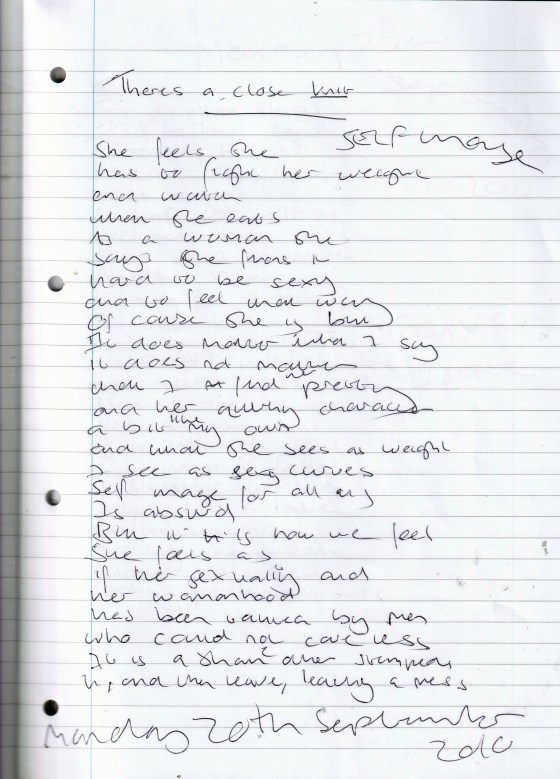 Theres a close knit
SELF image
She feels she
has to fight her weight
and watch
what she eats
As a woman she
says she finds it
hard to be sexy
and to feel that way
Of cause she is but
It does matter what I say
it does not matter
that I find her pretty
and her quirky character
a bit like my own
and what she sees as weight
I see as sexy curves
Self image for all
Is absurd
But it is how we feel
She feels as
if her sexuality and
her womanhood
has been by men
who could not care less
It is a shame other
in, and then leave, leaving a mess
Monday 20th September
2010